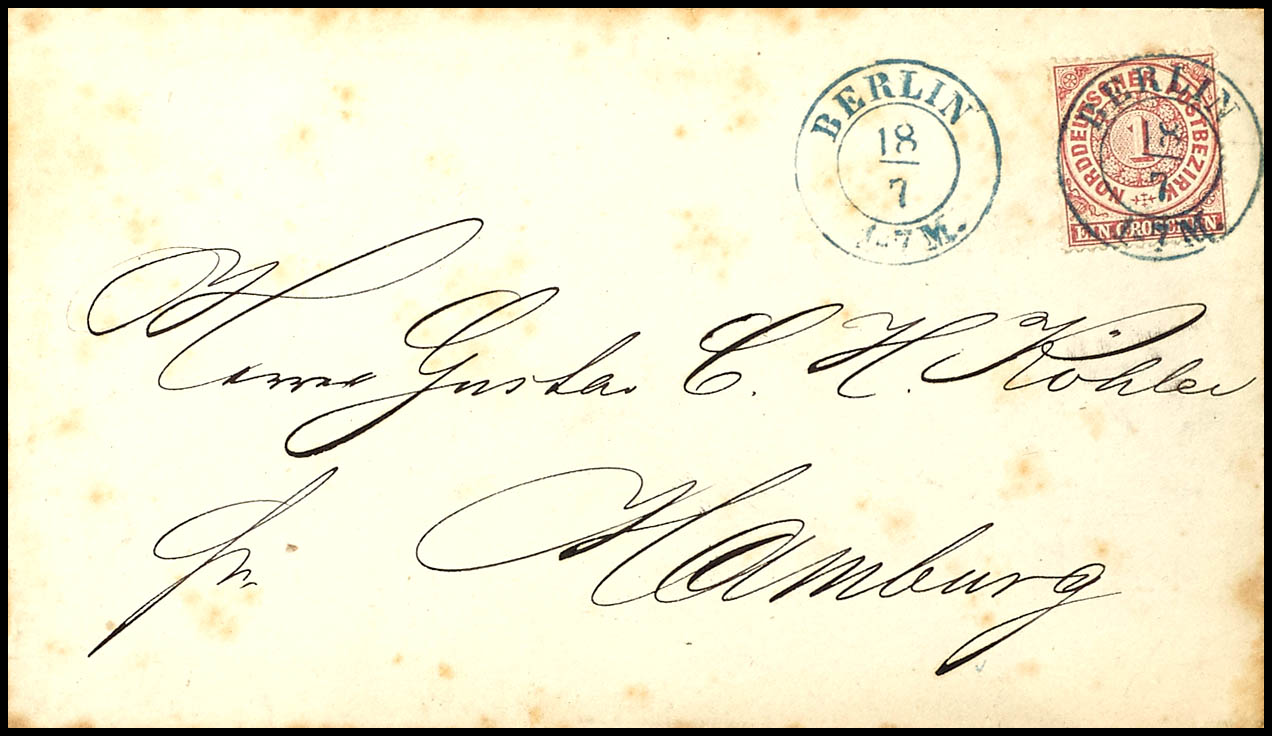 BERLIN
18
7
1-7M.
NORDDEUTSCHER POSTBEZIRK
1
EIN GROSCHEN
BERLIN
18
7
7M
Gustav C. H. Köhler
fr.
Hamburg